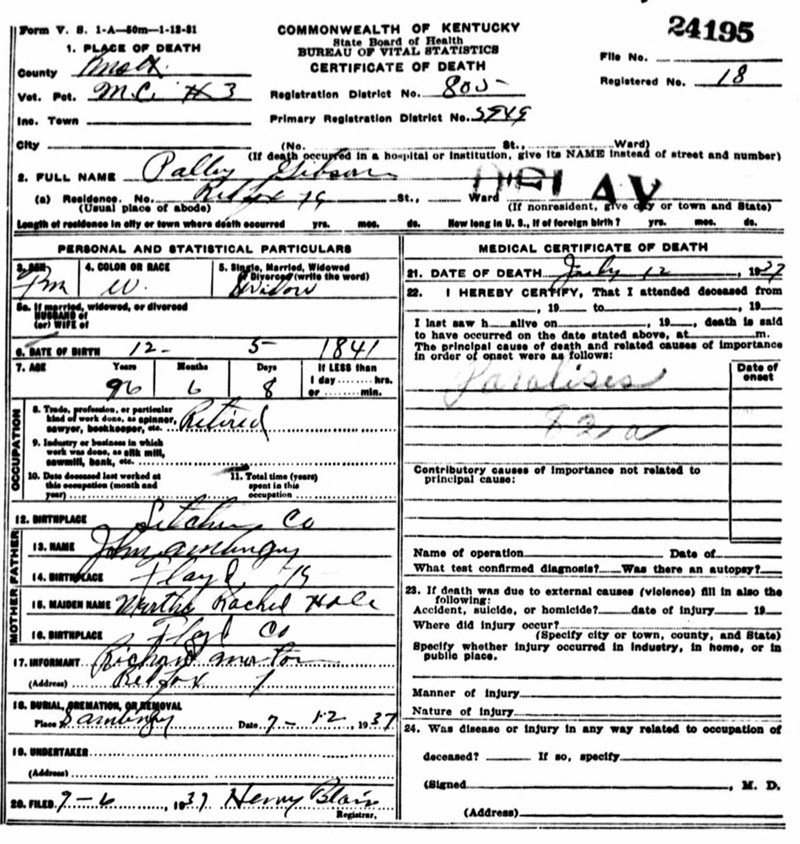 Form V. S. 1-A—50m—1-12-31
COMMONWEALTH OF KENTUCKY
State Board of Health
BUREAU OF VITAL STATISTICS
CERTIFICATE OF DEATH
24195
File No.
Registered No. 18
1. PLACE OF DEATH
County Knott
Vot. Pct. M.C. # 3
Registration District No. 805
Inc. Town
Primary Registration District No.
City (No. St., Ward)
(If death occurred in a hospital or institution, give its NAME instead of street and number)
2. FULL NAME Pally Gibson
DELAY
(a) Residence. No. Redfox Ky St., Ward
(Usual place of abode) (If nonresident, give city or town and State)
Length of residence in city or town where death occurred yrs. mos. ds. How long in U. S., if of foreign birth? yrs. mos. ds.
PERSONAL AND STATISTICAL PARTICULARS
3. SEX 4. COLOR OR RACE 5. Single, Married, Widowed
or Divorced (write the word)
Fm W. Widow
5a. If married, widowed, or divorced
HUSBAND of
(or) WIFE of
6. DATE OF BIRTH 12- 5 1841
7. AGE Years Months Days If LESS than
1 day hrs.
96 6 8 or min.
OCCUPATION
8. Trade, profession, or particular
kind of work done, as spinner, Retired
sawyer, bookkeeper, etc.
9. Industry or business in which
work was done, as silk mill,
sawmill, bank, etc.
10. Date deceased last worked at 11. Total time (years)
this occupation (month and spent in this
year) occupation
12. BIRTHPLACE Letcher Co
FATHER
13. NAME John Amburgy
14. BIRTHPLACE Floyd, Ky
MOTHER
15. MAIDEN NAME Martha Rachel Hale
16. BIRTHPLACE Floyd Co
17. INFORMANT Richard
(Address) Redfox
18. BURIAL, CREMATION, OR REMOVAL
Place Date 7-12, 1937
19. UNDERTAKER
(Address)
20. FILED 9-6, 1937 Henry Blair
Registrar.
MEDICAL CERTIFICATE OF DEATH
21. DATE OF DEATH July 12, 1937
22. I HEREBY CERTIFY, That I attended deceased from
, 19 to , 19
I last saw h alive on , 19 , death is said
to have occurred on the date stated above, at m.
The principal cause of death and related causes of importance
in order of onset were as follows:
Date of
onset
Paralises
82a
Contributory causes of importance not related to
principal cause:
Name of operation Date of
What test confirmed diagnosis? Was there an autopsy?
23. If death was due to external causes (violence) fill in also the
following:
Accident, suicide, or homicide? date of injury 19
Where did injury occur?
(Specify city or town, county, and State)
Specify whether injury occurred in industry, in home, or in
public place.
Manner of injury
Nature of injury
24. Was disease or injury in any way related to occupation of
deceased? If so, specify
(Signed , M. D.
(Address)